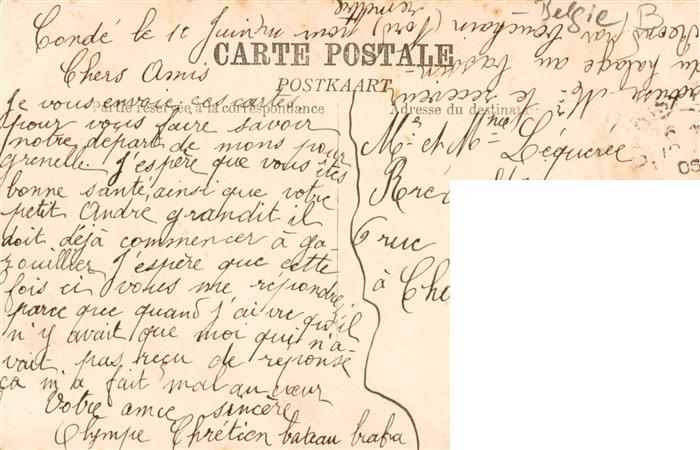 Condé le 10 Juin
CARTE POSTALE
POSTKAART
Partie réservée à la correspondance
Adresse du destinataire
Chers Amis
Je vous envoie ces cartes
pour vous faire savoir
notre départ de mons pour
grenelle. J'espère que vous êtes
bonne santé, ainsi que votre
petit André grandit il
doit déjà commencer à ga
zouillier J'espère que cette
fois ci vous me répondrez
parce que quand j'ai vu qu'il
n'y avait que moi qui n'a-
vait pas reçu de réponse
ça m'a fait mal au cœur
Votre amie sincère
Olympe Chrétien bateau
Mr et Mme Léquerée
rue
à
Belgie / B
le receveur
du halage au